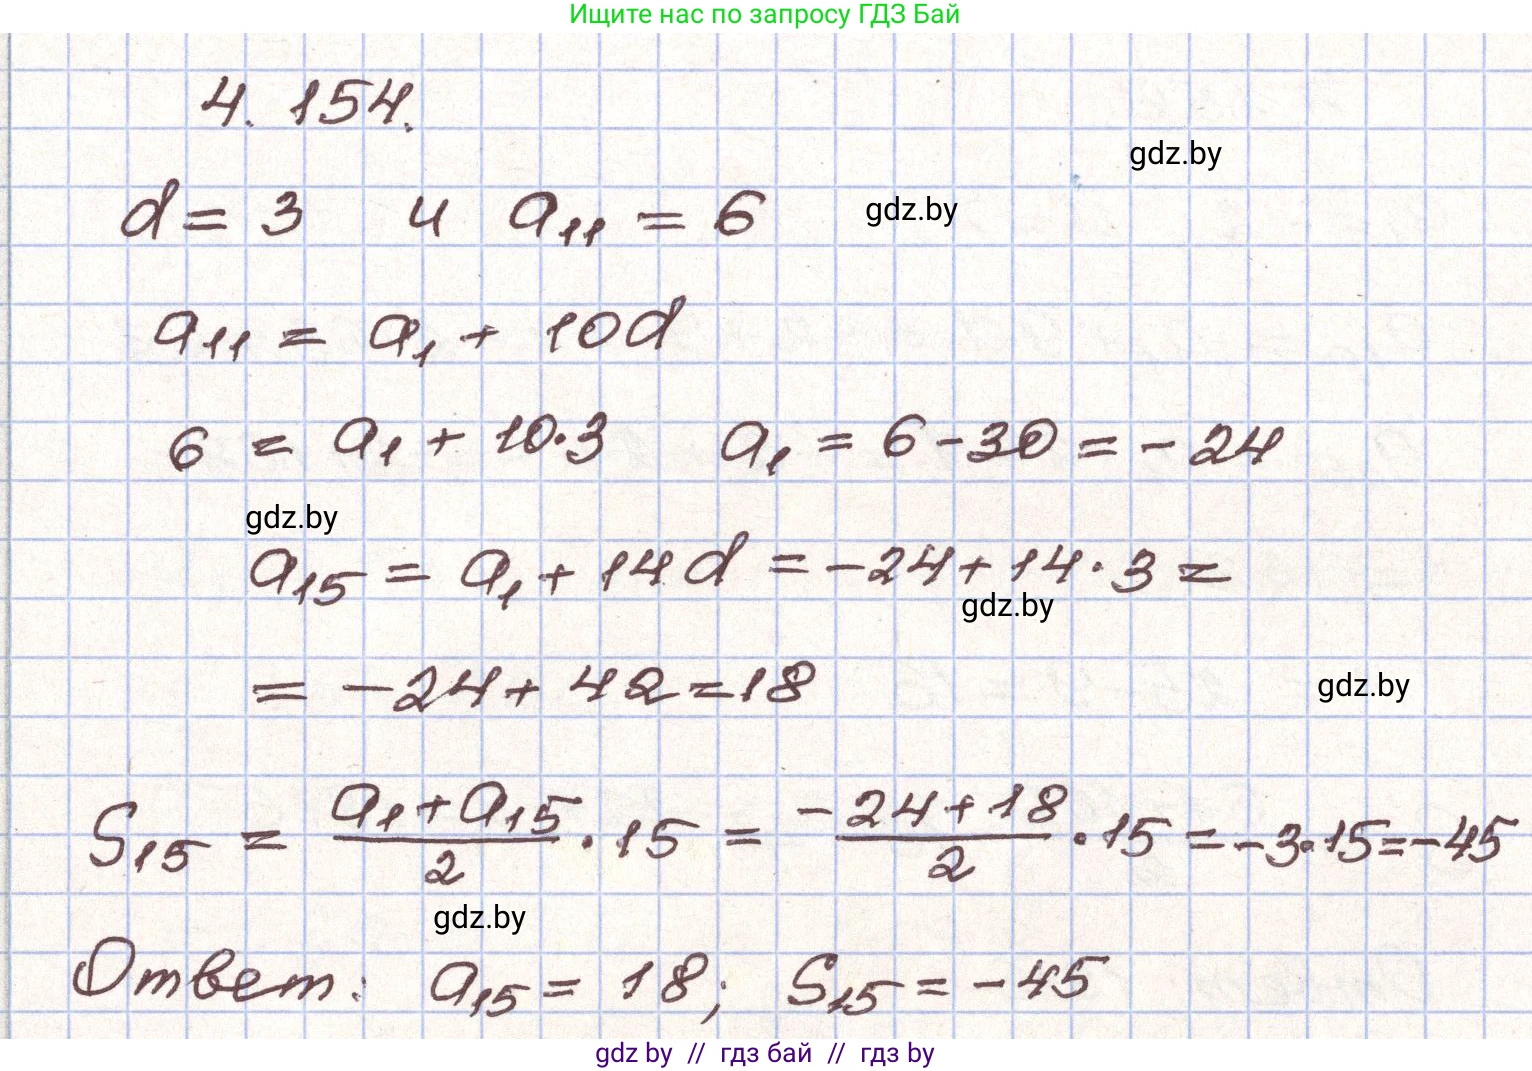 Ищите нас по запросу ГДЗ Бай
4. 154.
gdz.by
d = 3 и a₁₁ = 6 gdz.by
a₁₁ = a₁ + 10d
6 = a₁ + 10·3 a₁ = 6 - 30 = - 24
gdz.by
a₁₅ = a₁ + 14d = - 24 + 14 · 3 =
gdz.by
= - 24 + 42 = 18
gdz.by
S₁₅ = (a₁ + a₁₅)/2 · 15 = (- 24 + 18)/2 · 15 = - 3 · 15 = - 45
gdz.by
Ответ: a₁₅ = 18; S₁₅ = - 45
gdz by // гдз бай // гдз by